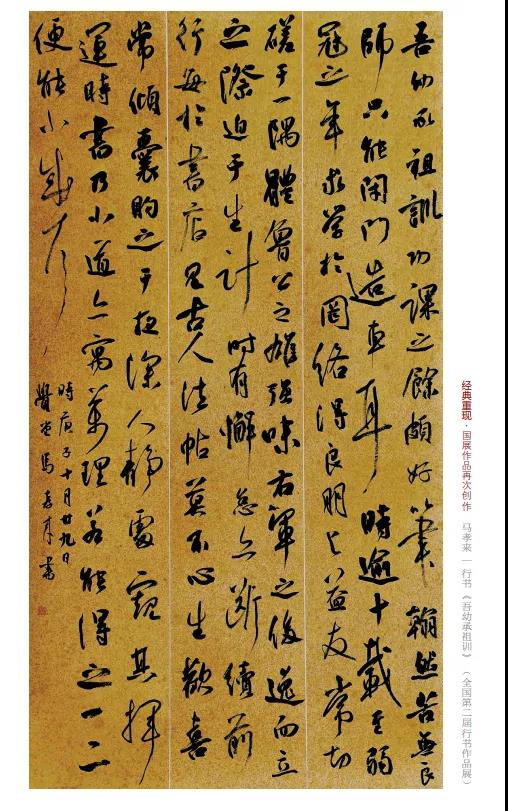 吾幼承祖訓功課之餘頗好筆翰然苦無良
師只能閉門造車耳時逾十載至弱
冠之年求学於罔络得良朋与益友常切
磋于一隅體魯公之雄强味右軍之俊逸而立
之際迫于生計时有懈怠亦断續前
行每於書店見古人法帖莫不心生歡喜
常傾囊购之于夜深人静處窺其揮
運時書乃小道亦寓萬理若能得之一二
便能小成矣
時庚子十月廿九日
馬孝来書
经典重现·国展作品再次创作 马孝来｜行书《吾幼承祖训》（全国第二届行书作品展）